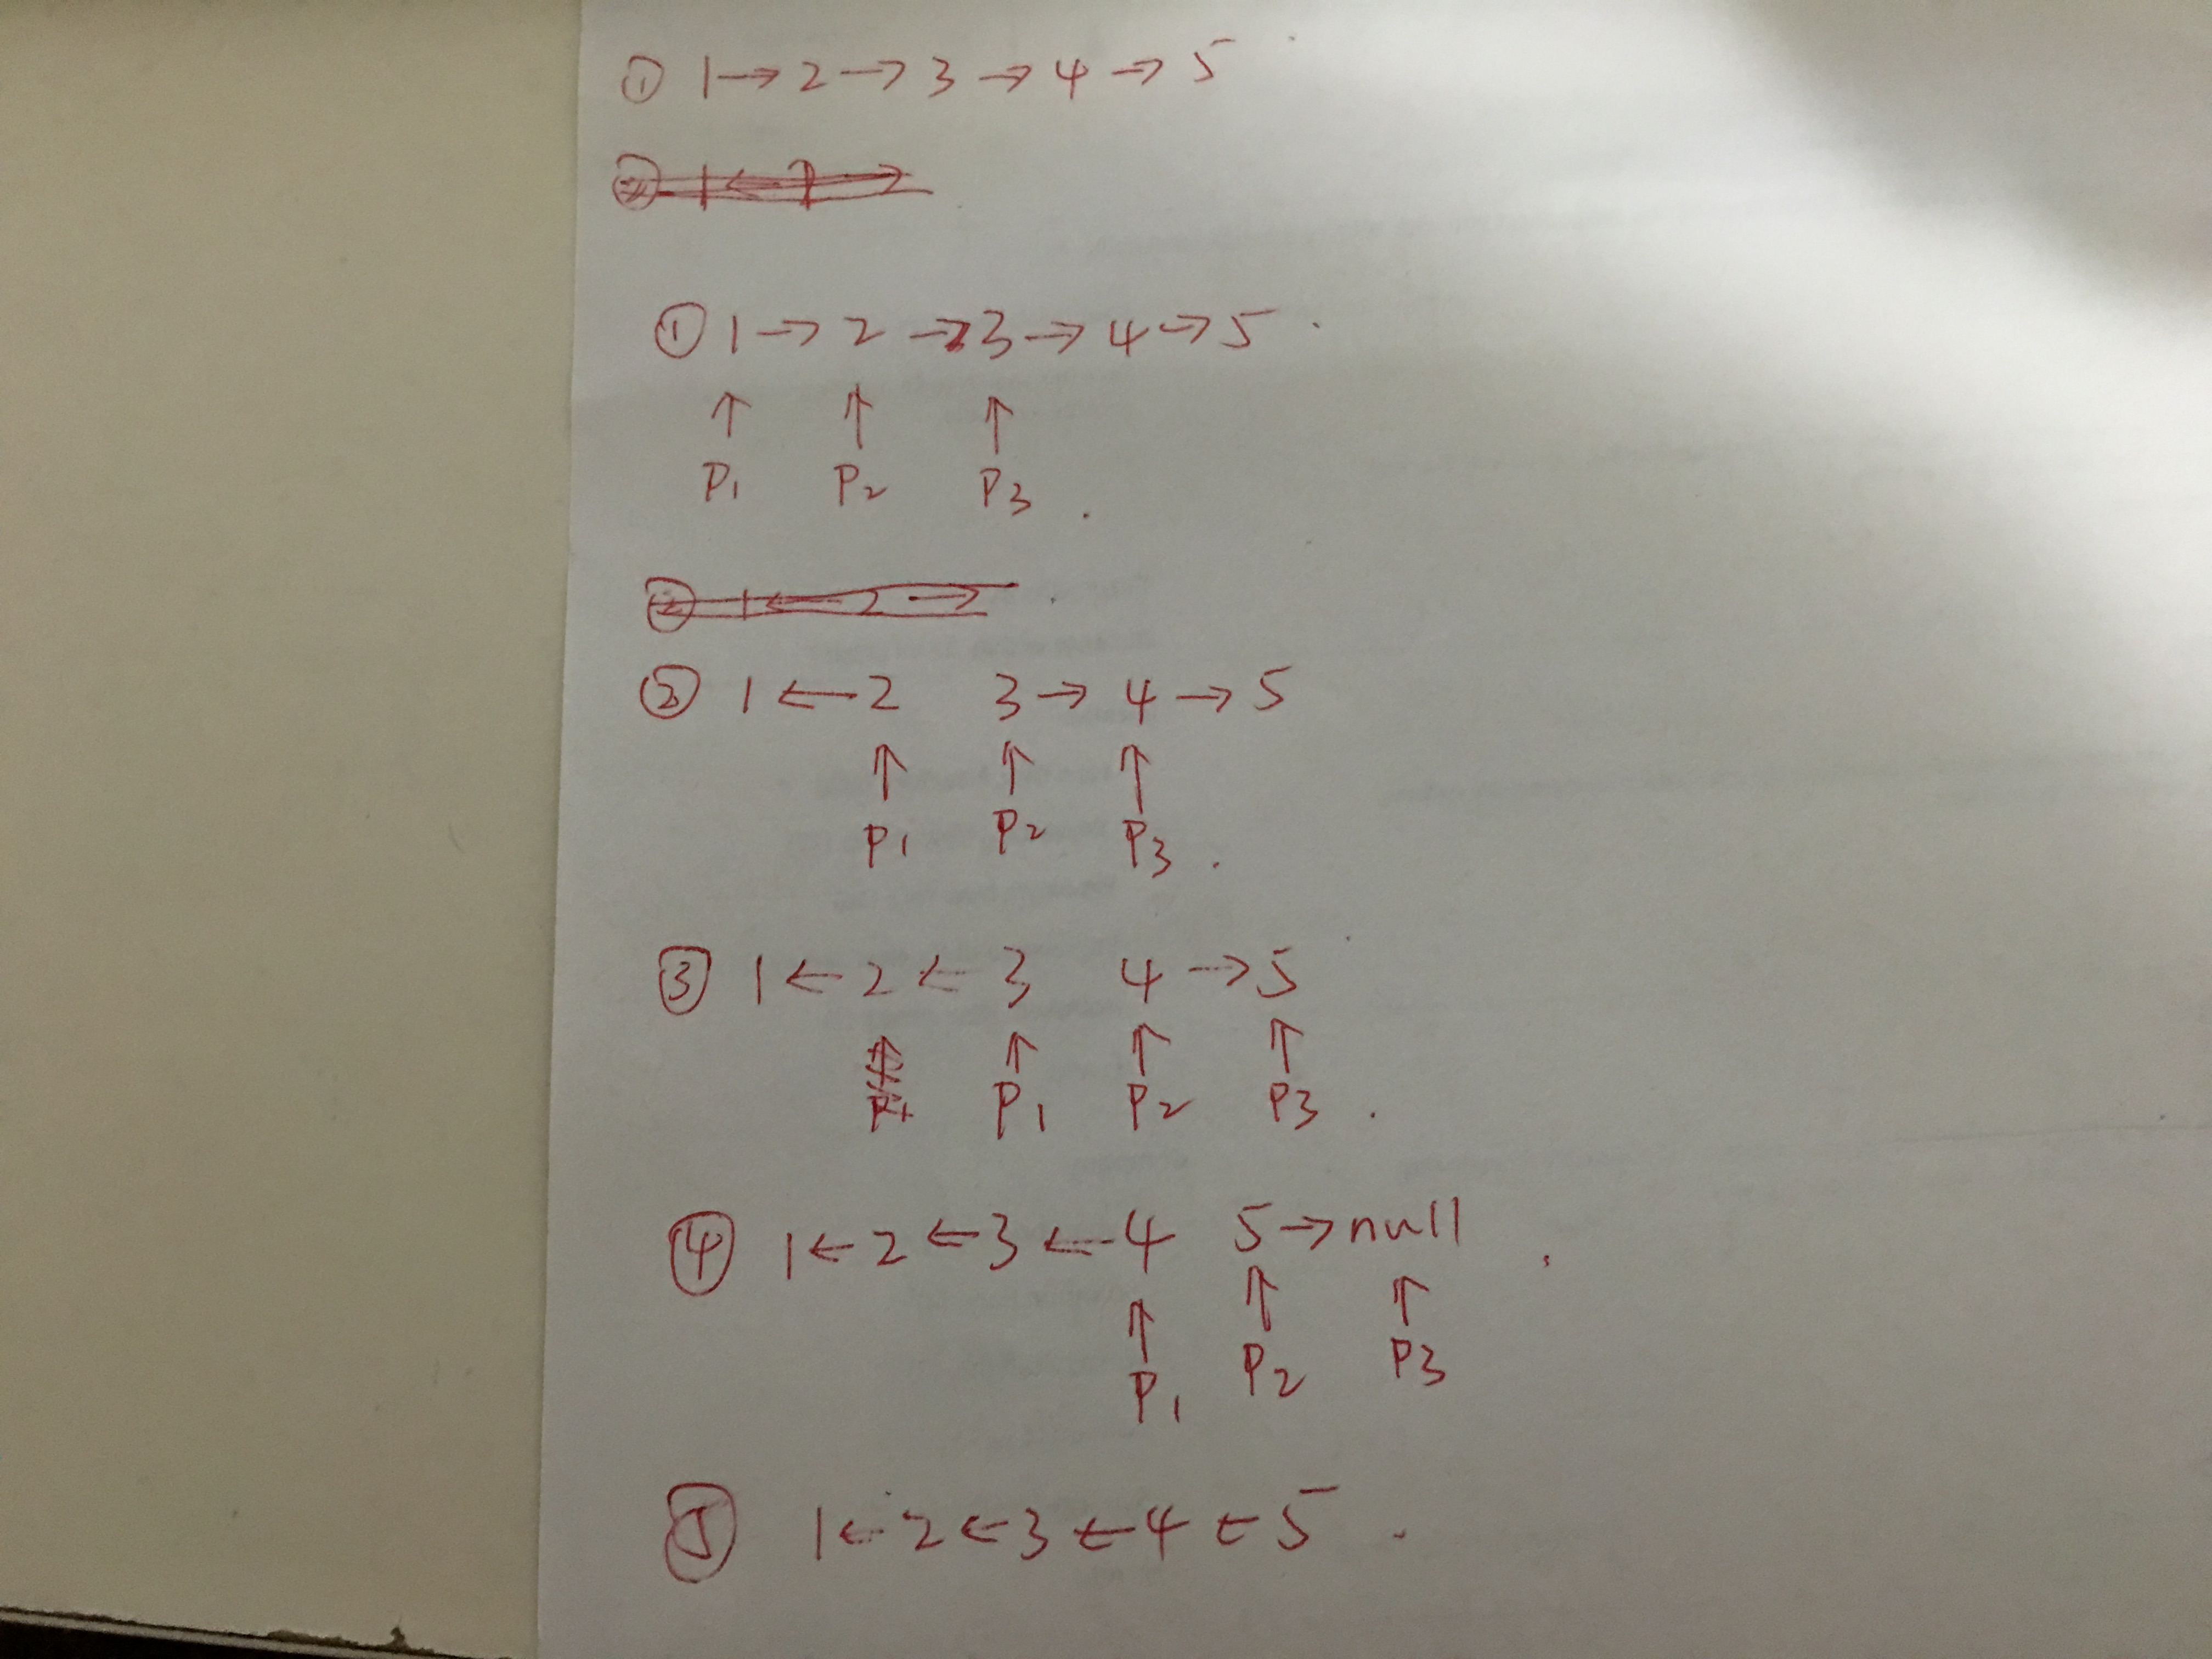 ① 1→2→3→4→5
① 1→2→3→4→5
↑ ↑ ↑
P1 P2 P3
② 1←2 3→4→5
↑ ↑ ↑
P1 P2 P3
③ 1←2←3 4→5
↑ ↑ ↑
P1 P2 P3
④ 1←2←3←4 5→null
↑ ↑ ↑
P1 P2 P3
⑤ 1←2←3←4←5